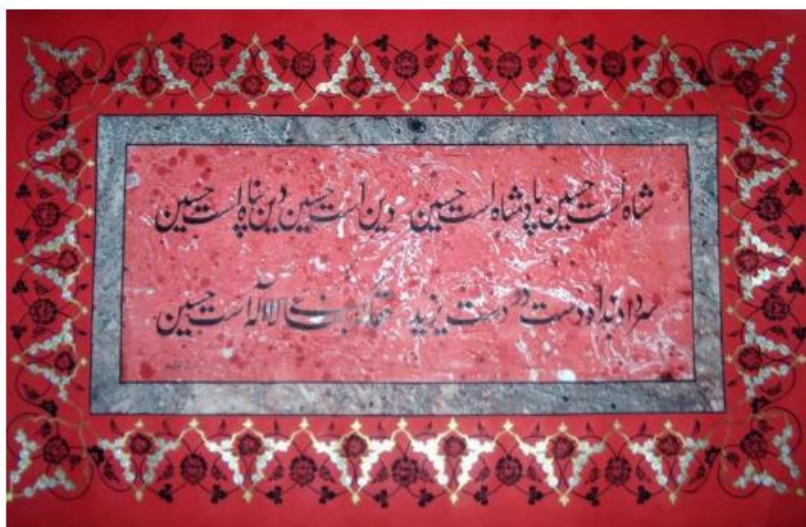 شاه است حسین پادشاه است حسین دین است حسین دین پناه است حسین
سر داد نداد دست در دست یزید حقا که بنای لا اله است حسین